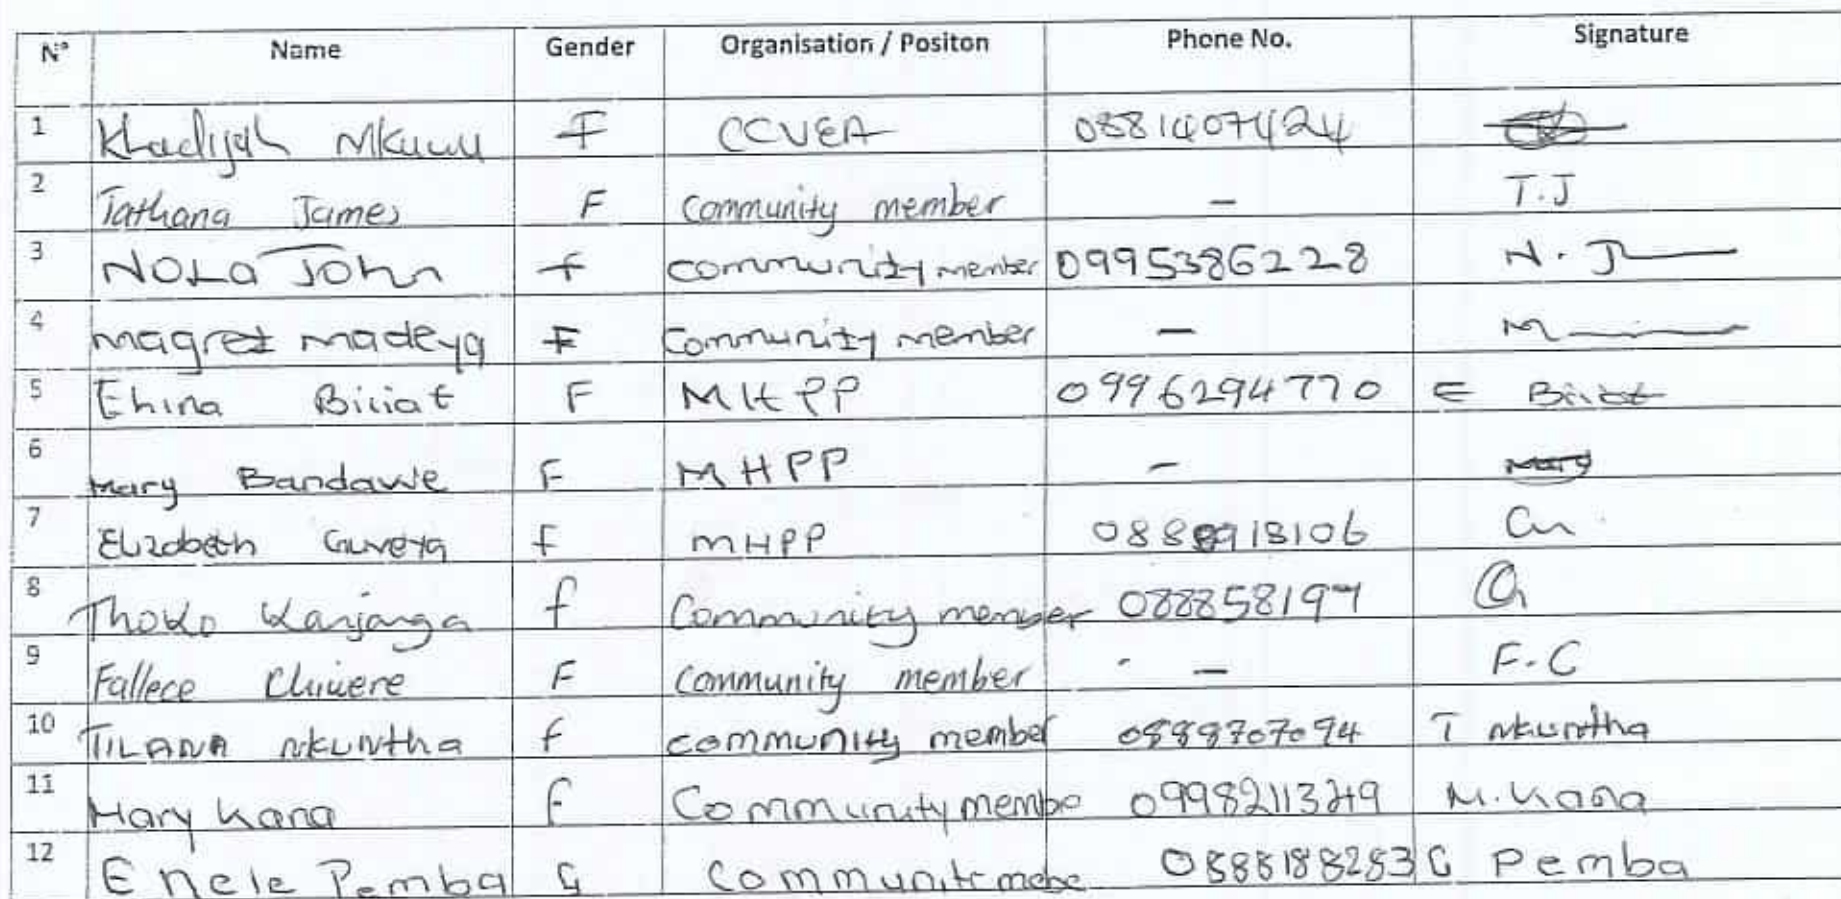 N° Name Gender Organisation / Positon Phone No. Signature
1 Khadijah Mkuwu F CCVEA 0881407424
2 Tathana James F Community member – T.J
3 Nola John f community member 0995386228 N. J
4 magret madeya F Community member – M
5 Ehina Biliat F MHPP 0996294770 E Biliat
6 Mary Bandawe F MHPP – Mary
7 Elizabeth Guveya f MHPP 0888918106
8 Thoko Kanjanga f Community member 088858197
9 Fallece Chiwere F Community member – F.C
10 TILANA nkuntha f community member 0999707094 T nkuntha
11 Mary Kana f Community membe 0998211349 M. Kana
12 Enele Pemba G Communite mebe 0888188283 G Pemba